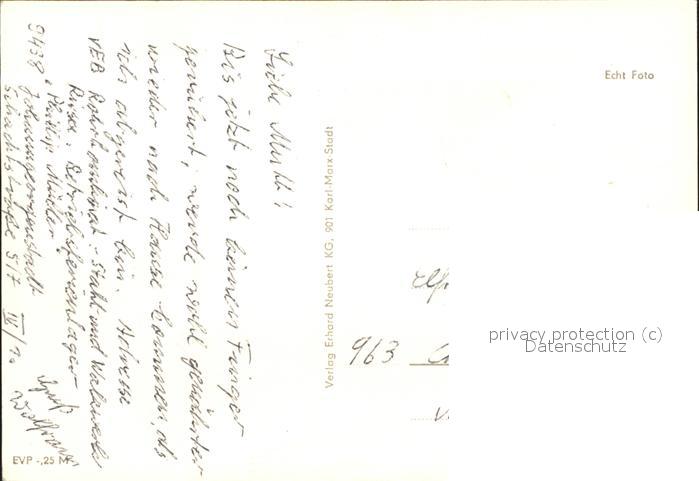 Liebe Mutti!
Bis jetzt noch keinen Finger
gerührt, werde wohl
wieder nach Hause kommen, als
ich abgereist bin. Adresse
VEB Rohrkombinat: Stahl und Walzwerk
Riesa: Betriebsferienlager
"Philipp Müller"
9438 Johanngeorgenstadt
Schachtstraße 517
Gruß
Wolfram
EVP -,25 M
Verlag Erhard Neubert KG, 901 Karl-Marx-Stadt
Echt Foto
963
privacy protection (c)
Datenschutz